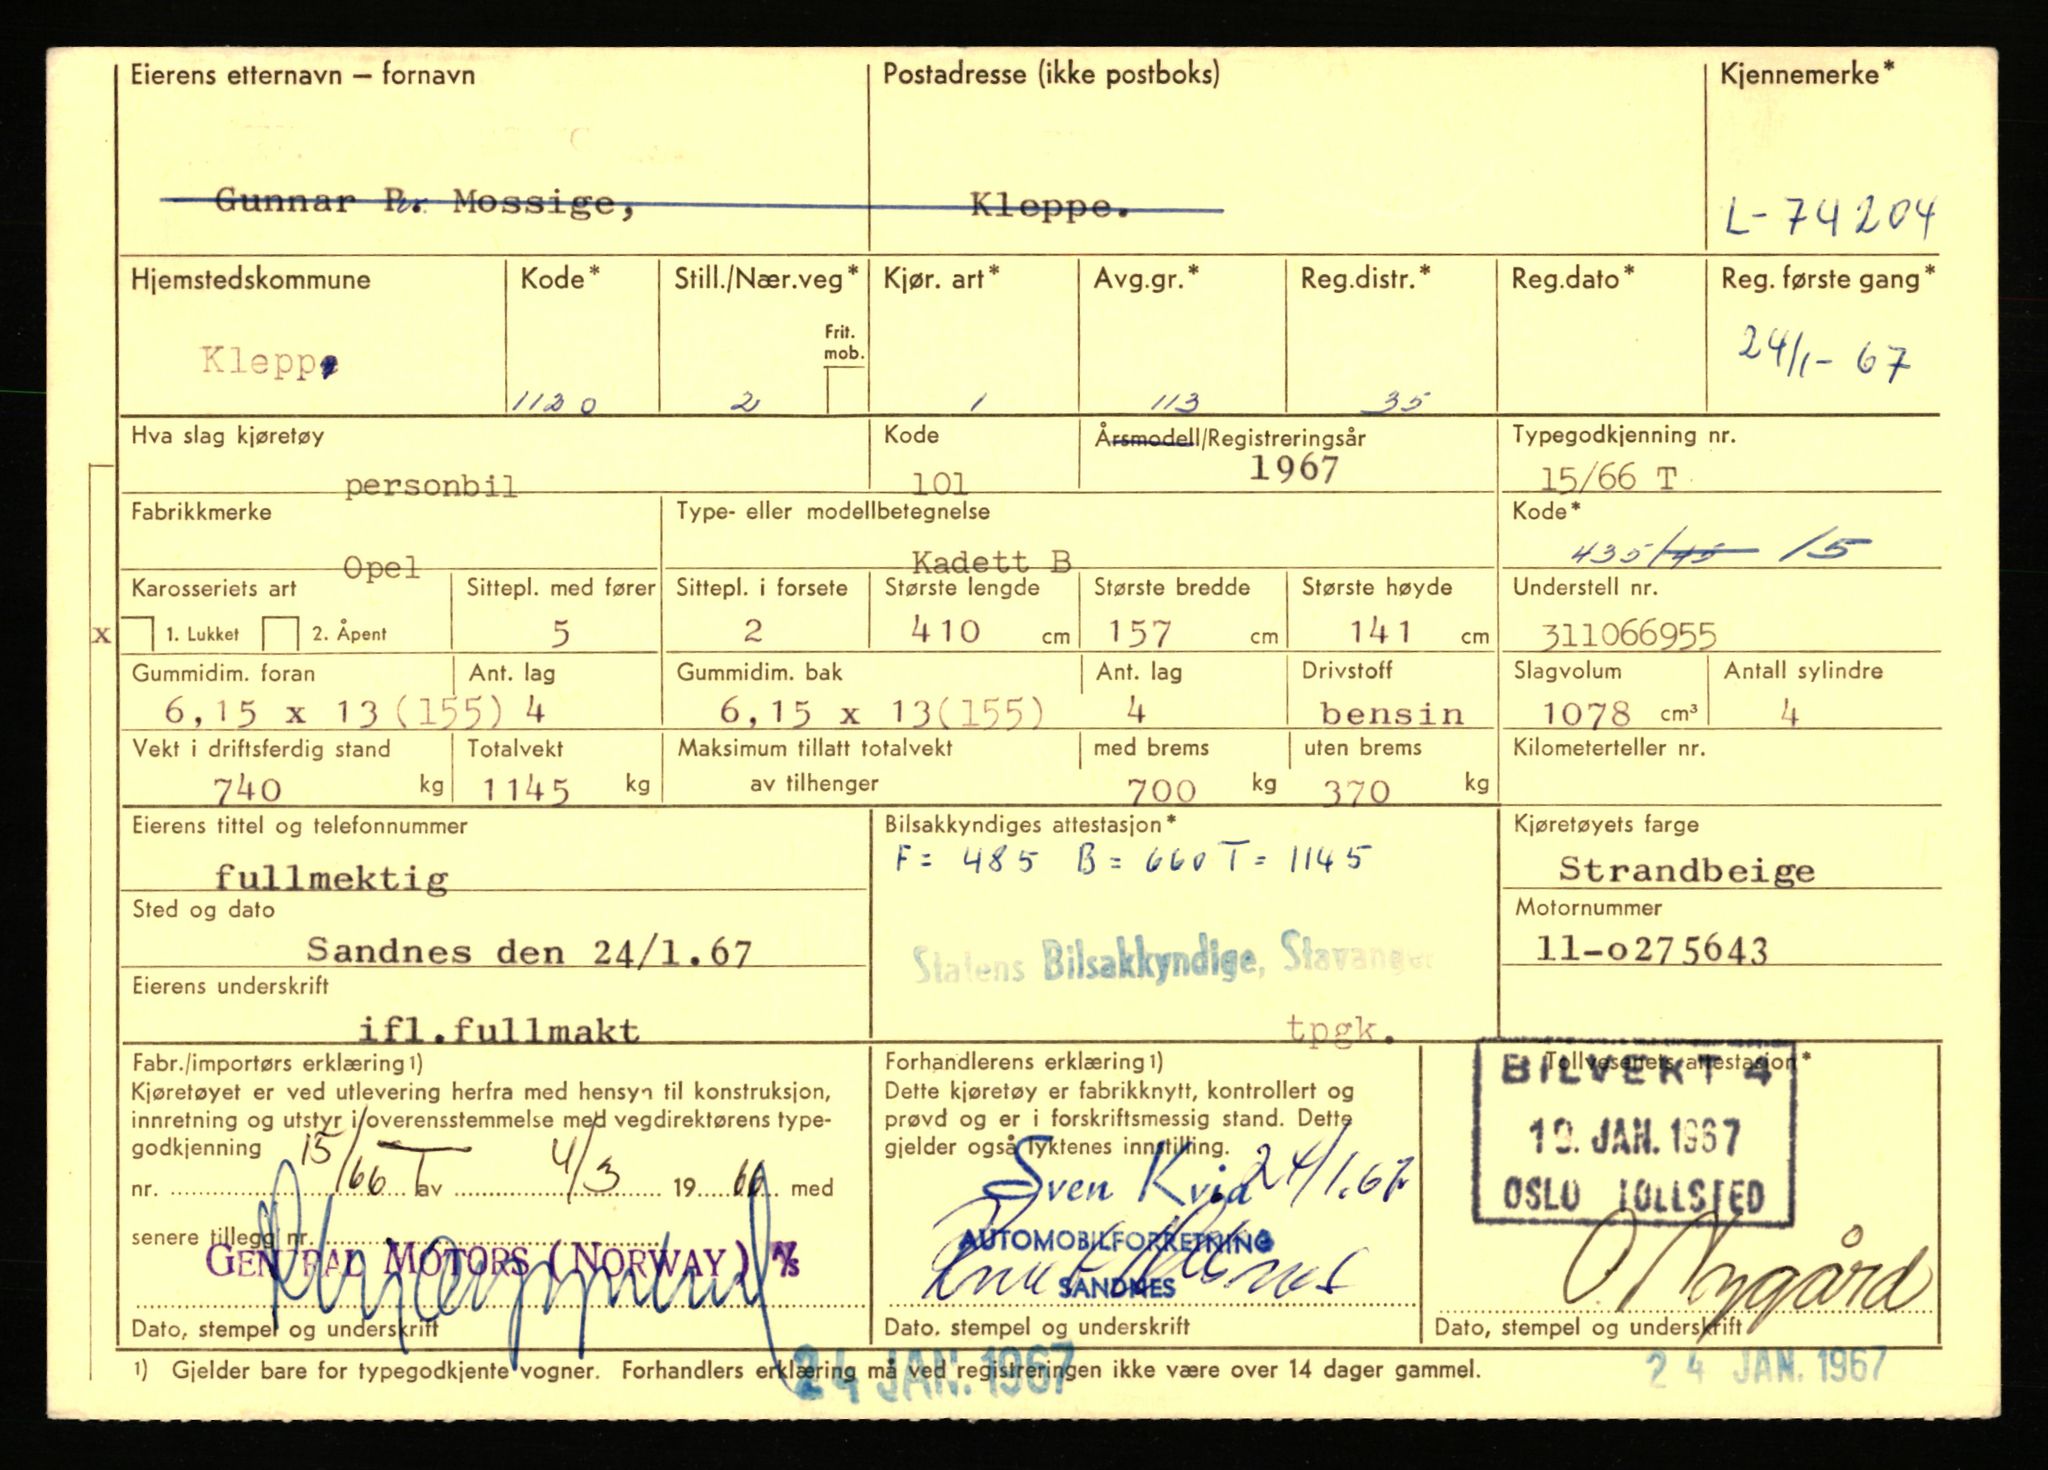 Eierens etternavn — fornavn
Postadresse (ikke postboks)
Kjennemerke*
Gunnar Pr. Mossige,
Kleppe.
L-74204
Hjemstedskommune
Kode*
Still./Nær.veg*
Kjør. art*
Avg.gr.*
Reg.distr.*
Reg.dato*
Reg. første gang*
Frit. mob.
Klepp
1120
2
1
113
35
24/1-67
Hva slag kjøretøy
Kode
Årsmodell/Registreringsår
Typegodkjenning nr.
personbil
101
1967
15/66 T
Fabrikkmerke
Type- eller modellbetegnelse
Kode*
Opel
Kadett B
435/45 15
Karosseriets art
Sittepl. med fører
Sittepl. i forsete
Største lengde
Største bredde
Største høyde
Understell nr.
x
1. Lukket
2. Åpent
5
2
410 cm
157 cm
141 cm
311066955
Gummidim. foran
Ant. lag
Gummidim. bak
Ant. lag
Drivstoff
Slagvolum
Antall sylindre
6,15 x 13(155)
4
6,15 x 13(155)
4
bensin
1078 cm³
4
Vekt i driftsferdig stand
Totalvekt
Maksimum tillatt totalvekt
med brems
uten brems
Kilometerteller nr.
740 kg
1145 kg
av tilhenger
700 kg
370 kg
Eierens tittel og telefonnummer
Bilsakkyndiges attestasjon*
Kjøretøyets farge
F = 485 B = 660 T = 1145
fullmektig
Strandbeige
Sted og dato
Motornummer
Sandnes den 24/1.67
Statens Bilsakkyndige, Stavanger
11-o275643
Eierens underskrift
ifl.fullmakt
tpgk.
Fabr./importørs erklæring1)
Kjøretøyet er ved utlevering herfra med hensyn til konstruksjon,
innretning og utstyr i overensstemmelse med vegdirektørens type-
godkjenning
nr. 15/66 T av 4/3 1966 med
senere tillegg nr.
GENERAL MOTORS (NORWAY) A/S
Dato, stempel og underskrift
Forhandlerens erklæring1)
Dette kjøretøy er fabrikknytt, kontrollert og
prøvd og er i forskriftsmessig stand. Dette
gjelder også lyktenes innstilling.
Sven Kvia 24/1.67.
AUTOMOBILFORRETNING
SANDNES
Dato. stempel og underskrift
Tollvesenets attestasjon*
BILVEKT 4
19. JAN. 1967
OSLO TOLLSTED
O. Nygård
Dato, stempel og underskrift
1) Gjelder bare for typegodkjente vogner. Forhandlers erklæring må ved registreringen ikke være over 14 dager gammel.
24 JAN. 1967
24 JAN. 1967